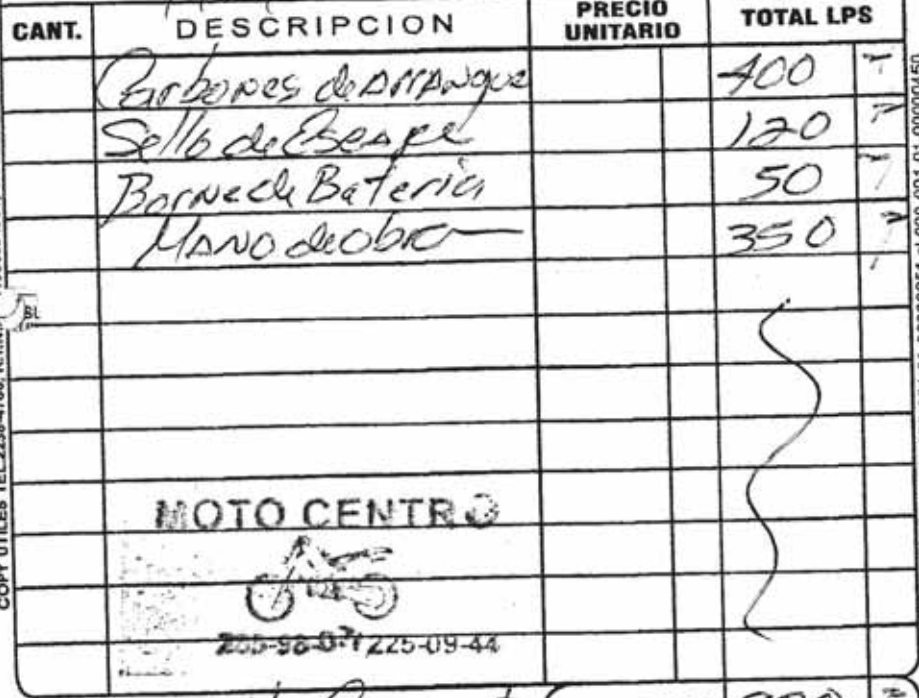 CANT. DESCRIPCION PRECIO UNITARIO TOTAL LPS
Carbones de Arranque 400
Sello de Escape 120
Borne de Bateria 50
Mano de obra 350
MOTO CENTRO
225-09-44
COPY UTILES TEL.